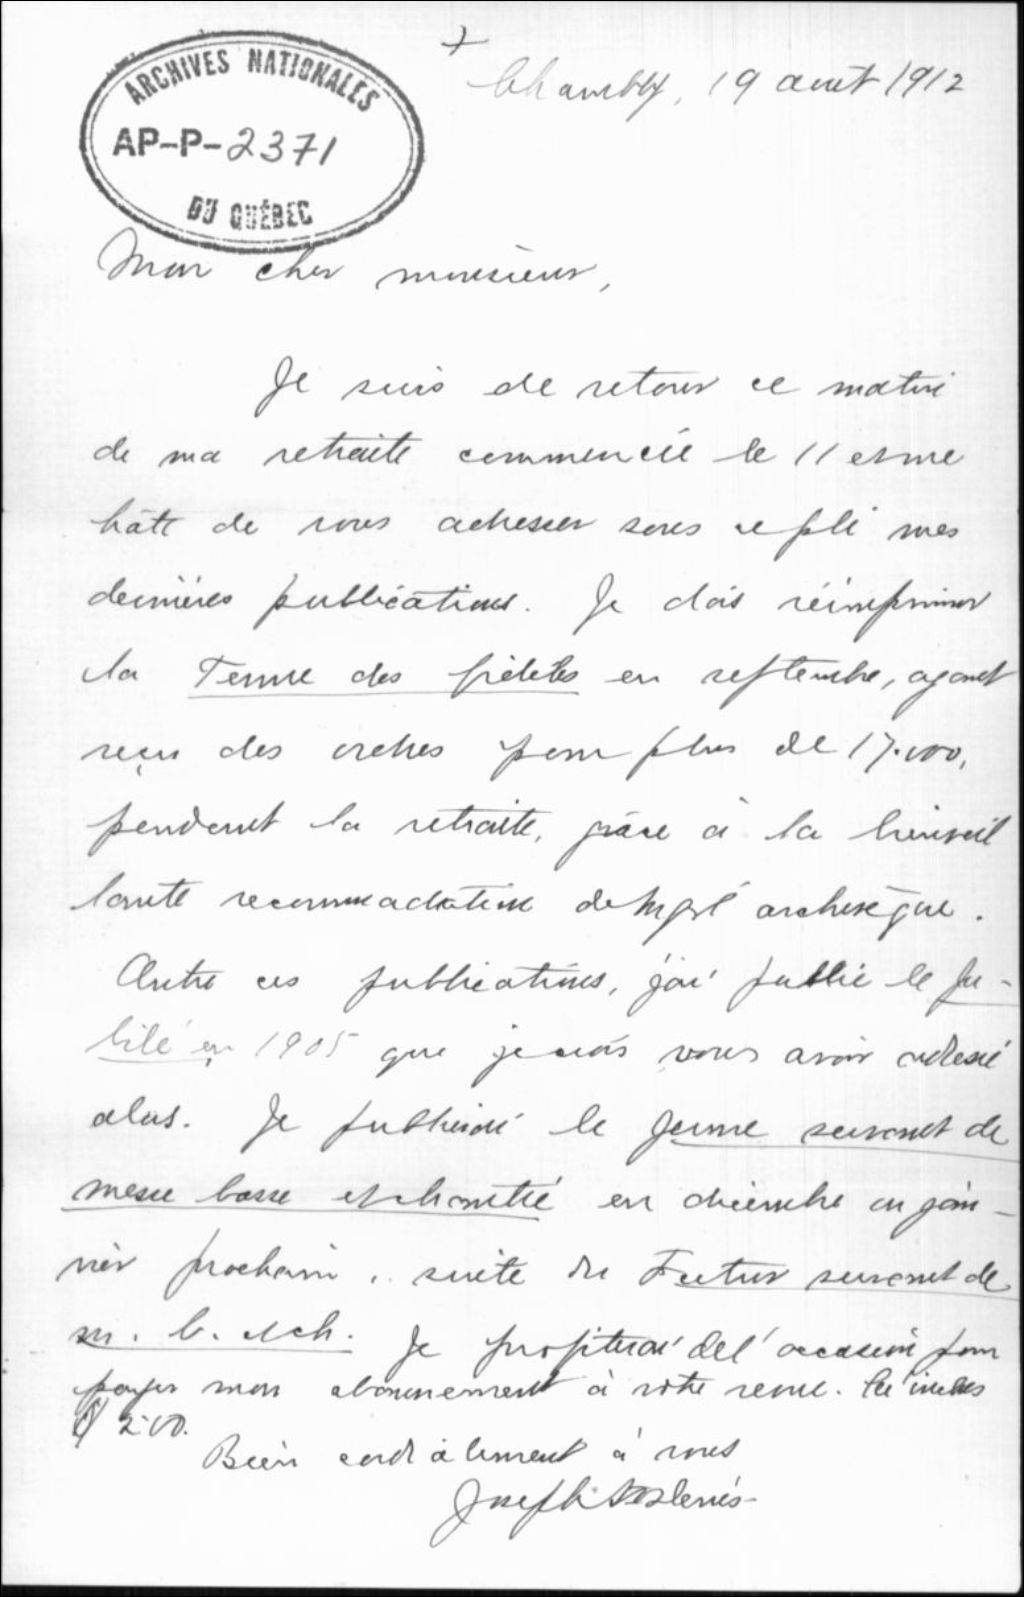 ARCHIVES NATIONALES
AP-P-2371
DU QUÉBEC
+
Chambly, 19 août 1912
Mon cher monsieur,
Je suis de retour ce matin
de ma retraite commencée le 11 et me
hâte de vous adresser sous ce pli mes
dernières publications. Je dois réimprimer
la Tenue des fidèles en septembre, ayant
reçu des ordres pour plus de 17.000,
pendant la retraite, grâce à la bienveil
lante recommadation de Mgr l'archevêque.
Outre ces publications, j'ai publié le Ju-
bilé en 1905 que je crois vous avoir adressé
alors. Je publierai le Jeune servant de
messe basse et chantée en décembre ou jan-
vier prochain, suite du Futur servant de
m. b. et ch. Je profiterai de l'occasion pour
payer mon abonnement à votre revue. Ci inclus
$ 2.00.
Bien cordialement à vous
Joseph